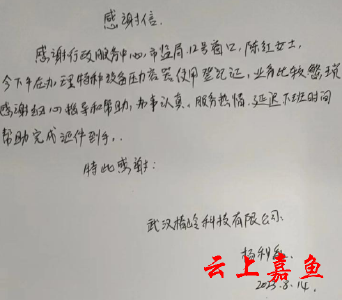 感谢信.
感谢行政服务中心,市监局12号窗口,陈红女士,
今下午在办理特种设备压力容器使用登记证,业务比较繁琐
感谢细心指导和帮助,办事认真、服务热情.延迟下班时间
帮助完成证件到手.
特此感谢:
武汉 科技有限公司.
杨利
云上嘉鱼
2023.8.14.